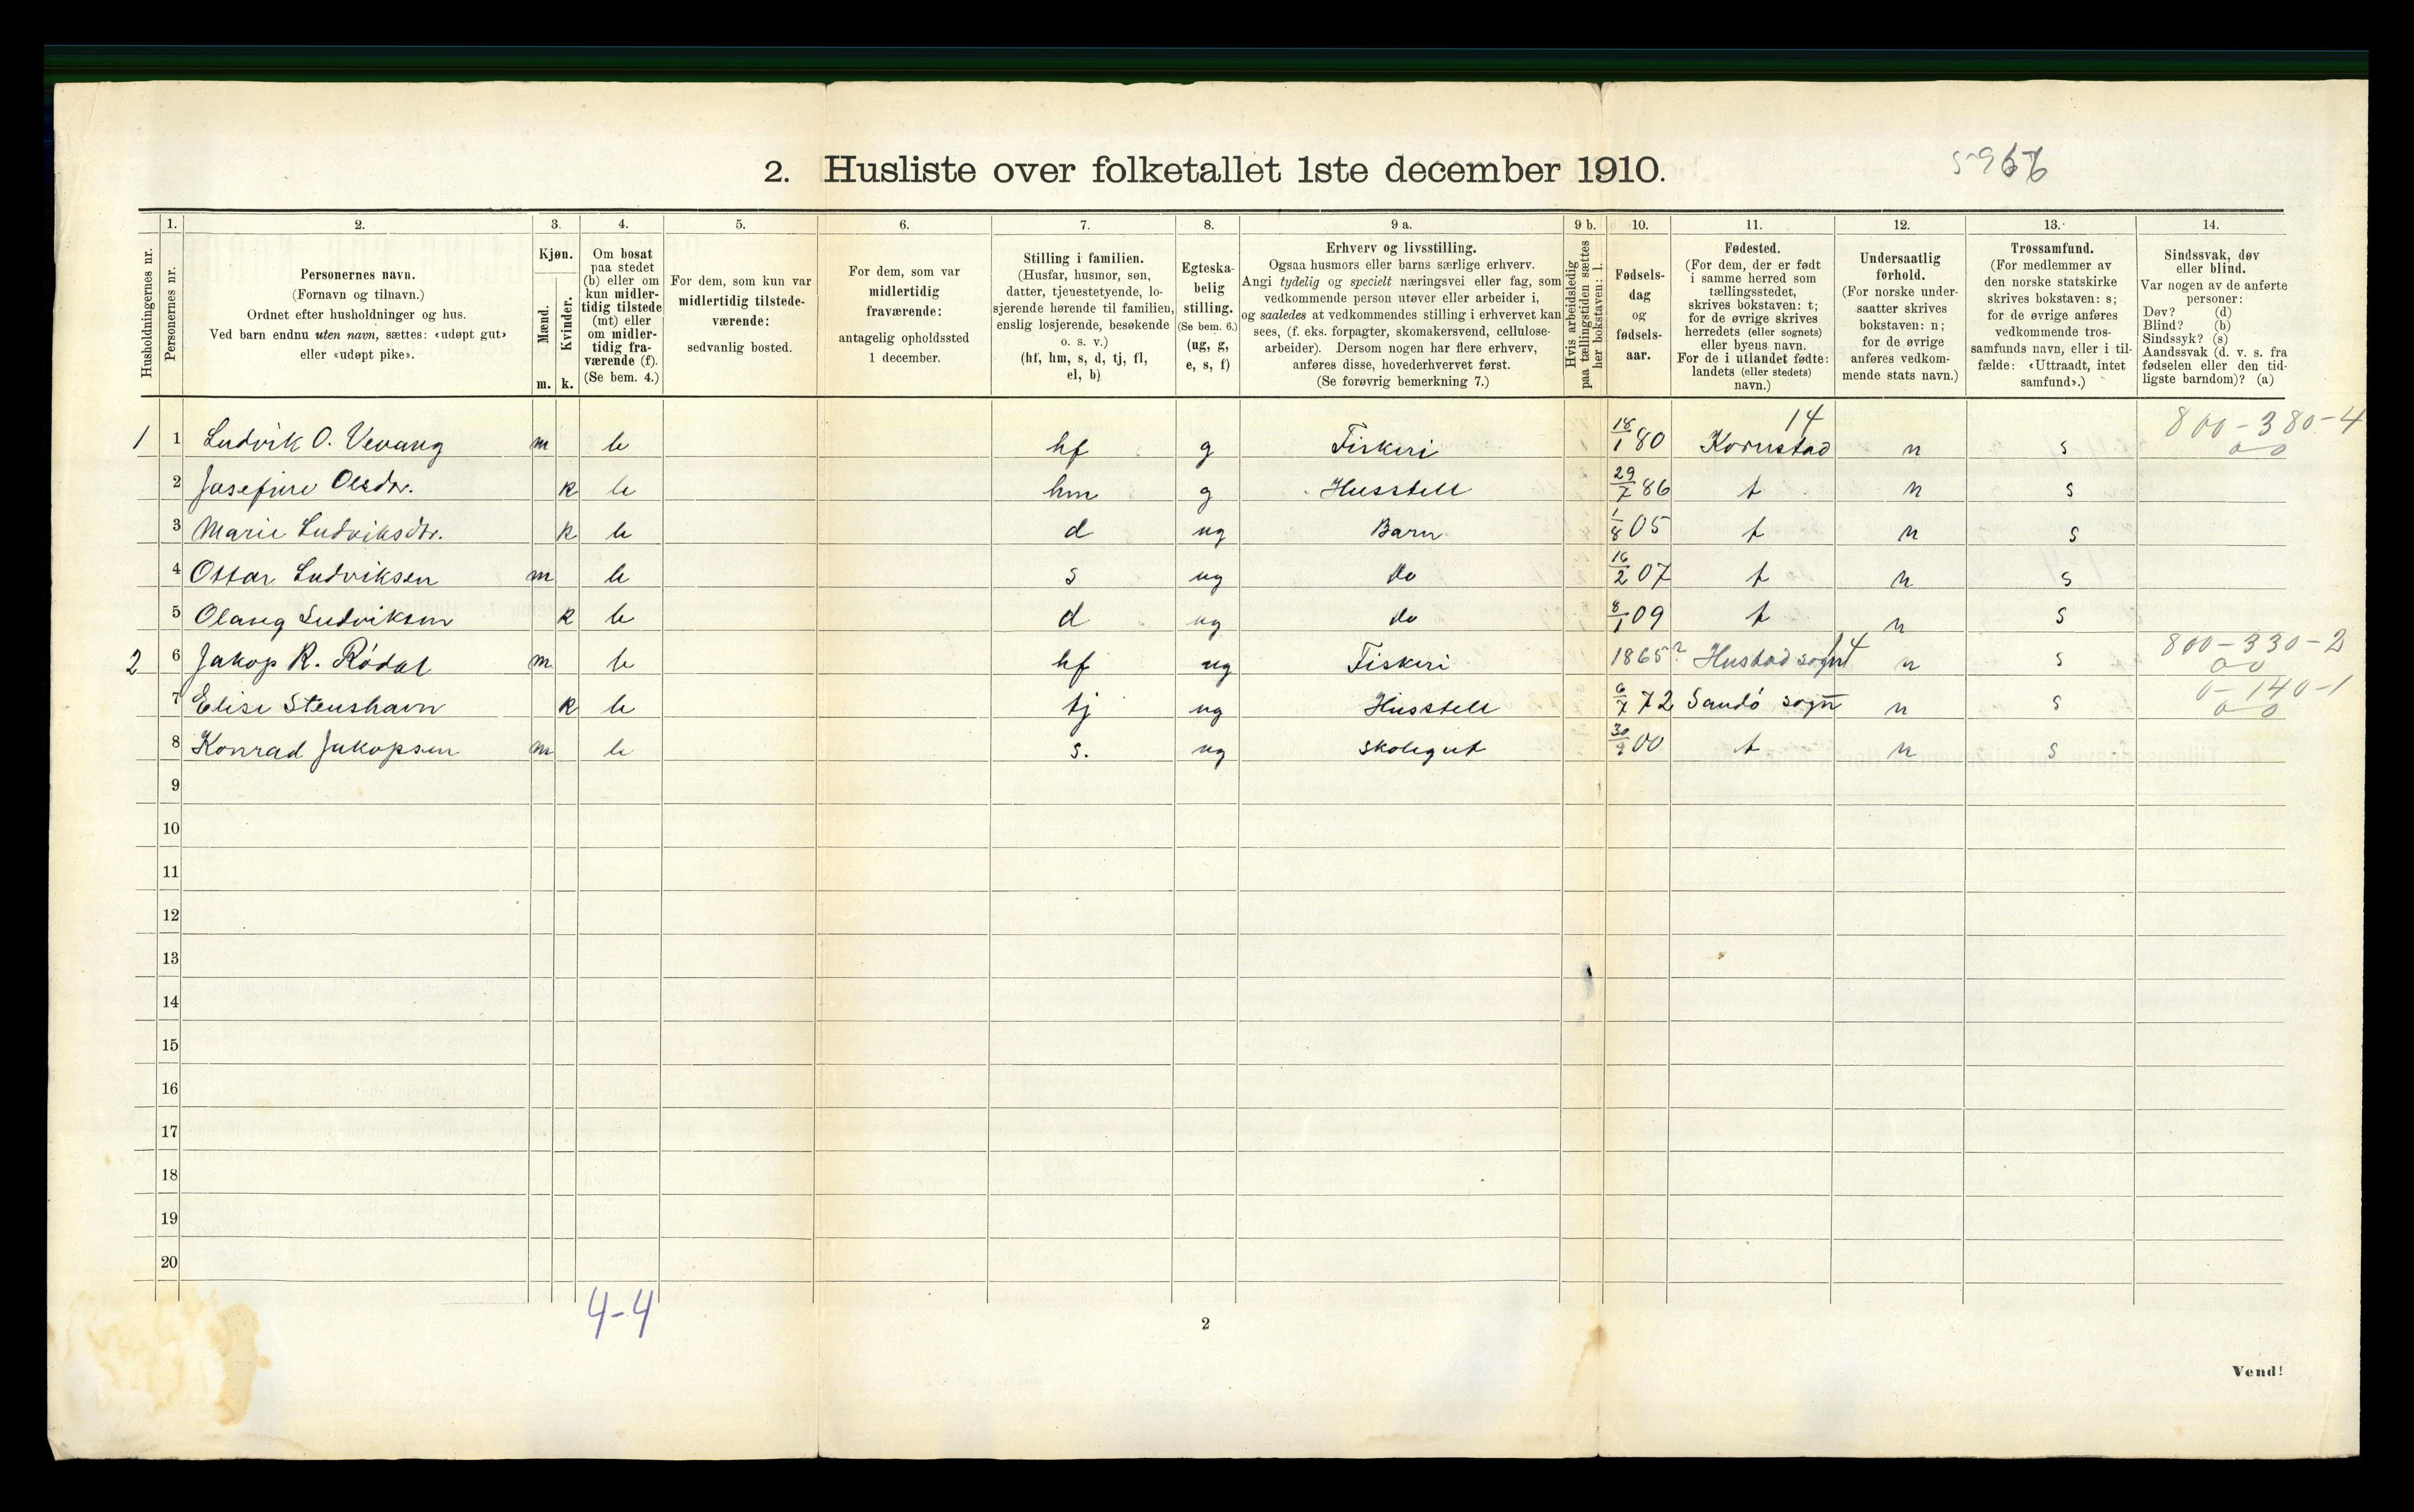 2. Husliste over folketallet 1ste december 1910.
1. 2. 3. 4. 5. 6. 7. 8. 9 a. 9 b. 10. 11. 12. 13. 14.
Husholdningernes nr.
Personernes nr.
Personernes navn.
(Fornavn og tilnavn.)
Ordnet efter husholdninger og hus.
Ved barn endnu uten navn, sættes: «udøpt gut»
eller «udøpt pike».
Kjøn.
Mænd.
Kvinder.
m. k.
Om bosat
paa stedet
(b) eller om
kun midler-
tidig tilstede
(mt) eller
om midler-
tidig fra-
værende (f).
(Se bem. 4.)
For dem, som kun var
midlertidig tilstede-
værende:
sedvanlig bosted.
For dem, som var
midlertidig
fraværende:
antagelig opholdssted
1 december.
Stilling i familien.
(Husfar, husmor, søn,
datter, tjenestetyende, lo-
sjerende hørende til familien,
enslig losjerende, besøkende
o. s. v.)
(hf, hm, s, d, tj, fl,
el, b)
Egteska-
belig
stilling.
(Se bem. 6.)
(ug, g,
e, s, f)
Erhverv og livsstilling.
Ogsaa husmors eller barns særlige erhverv.
Angi tydelig og specielt næringsvei eller fag, som
vedkommende person utøver eller arbeider i,
og saaledes at vedkommendes stilling i erhvervet kan
sees, (f. eks. forpagter, skomakersvend, cellulose-
arbeider). Dersom nogen har flere erhverv,
anføres disse, hovederhvervet først.
(Se forøvrig bemerkning 7.)
Hvis arbeidsledig
paa tællingstiden sættes
her bokstaven: l.
Fødsels-
dag
og
fødsels-
aar.
Fødested.
(For dem, der er født
i samme herred som
tællingsstedet,
skrives bokstaven: t;
for de øvrige skrives
herredets (eller sognets)
eller byens navn.
For de i utlandet fødte:
landets (eller stedets)
navn.)
Undersaatlig
forhold.
(For norske under-
saatter skrives
bokstaven: n;
for de øvrige
anføres vedkom-
mende stats navn.)
Trossamfund.
(For medlemmer av
den norske statskirke
skrives bokstaven: s;
for de øvrige anføres
vedkommende tros-
samfunds navn, eller i til-
fælde: «Uttraadt, intet
samfund».)
Sindssvak, døv
eller blind.
Var nogen av de anførte
personer:
Døv? (d)
Blind? (b)
Sindssyk? (s)
Aandssvak (d. v. s. fra
fødselen eller den tid-
ligste barndom)? (a)
14 800-380-4
1 1 Ludvik O. Vevang m b hf g Fiskeri 18/1 80 Kornstad n s 0-0
2 Josefine Olsdr. k b hm g Husstell 29/7 86 t n s
3 Marie Ludviksdtr. k b d ug Barn 1/8 05 t n s
4 Ottar Ludviksen m b s ug do 16/2 07 t n s
5 Olaug Ludviksen k b d ug do 8/1 09 t n s
14 800-330-2
2 6 Jakop R. Rødal m b hf ug Fiskeri 1865? Hustad sogn n s 0-0
0-140-1
7 Elise Stenshavn k b tj ug Husstell 6/7 72 Sandø sogn n s 0-0
8 Konrad Jakopsen m b s. ug skolegut 30/9 00 t n s
9
10
11
12
13
14
15
16
17
18
19
20
4-4
2
Vend!